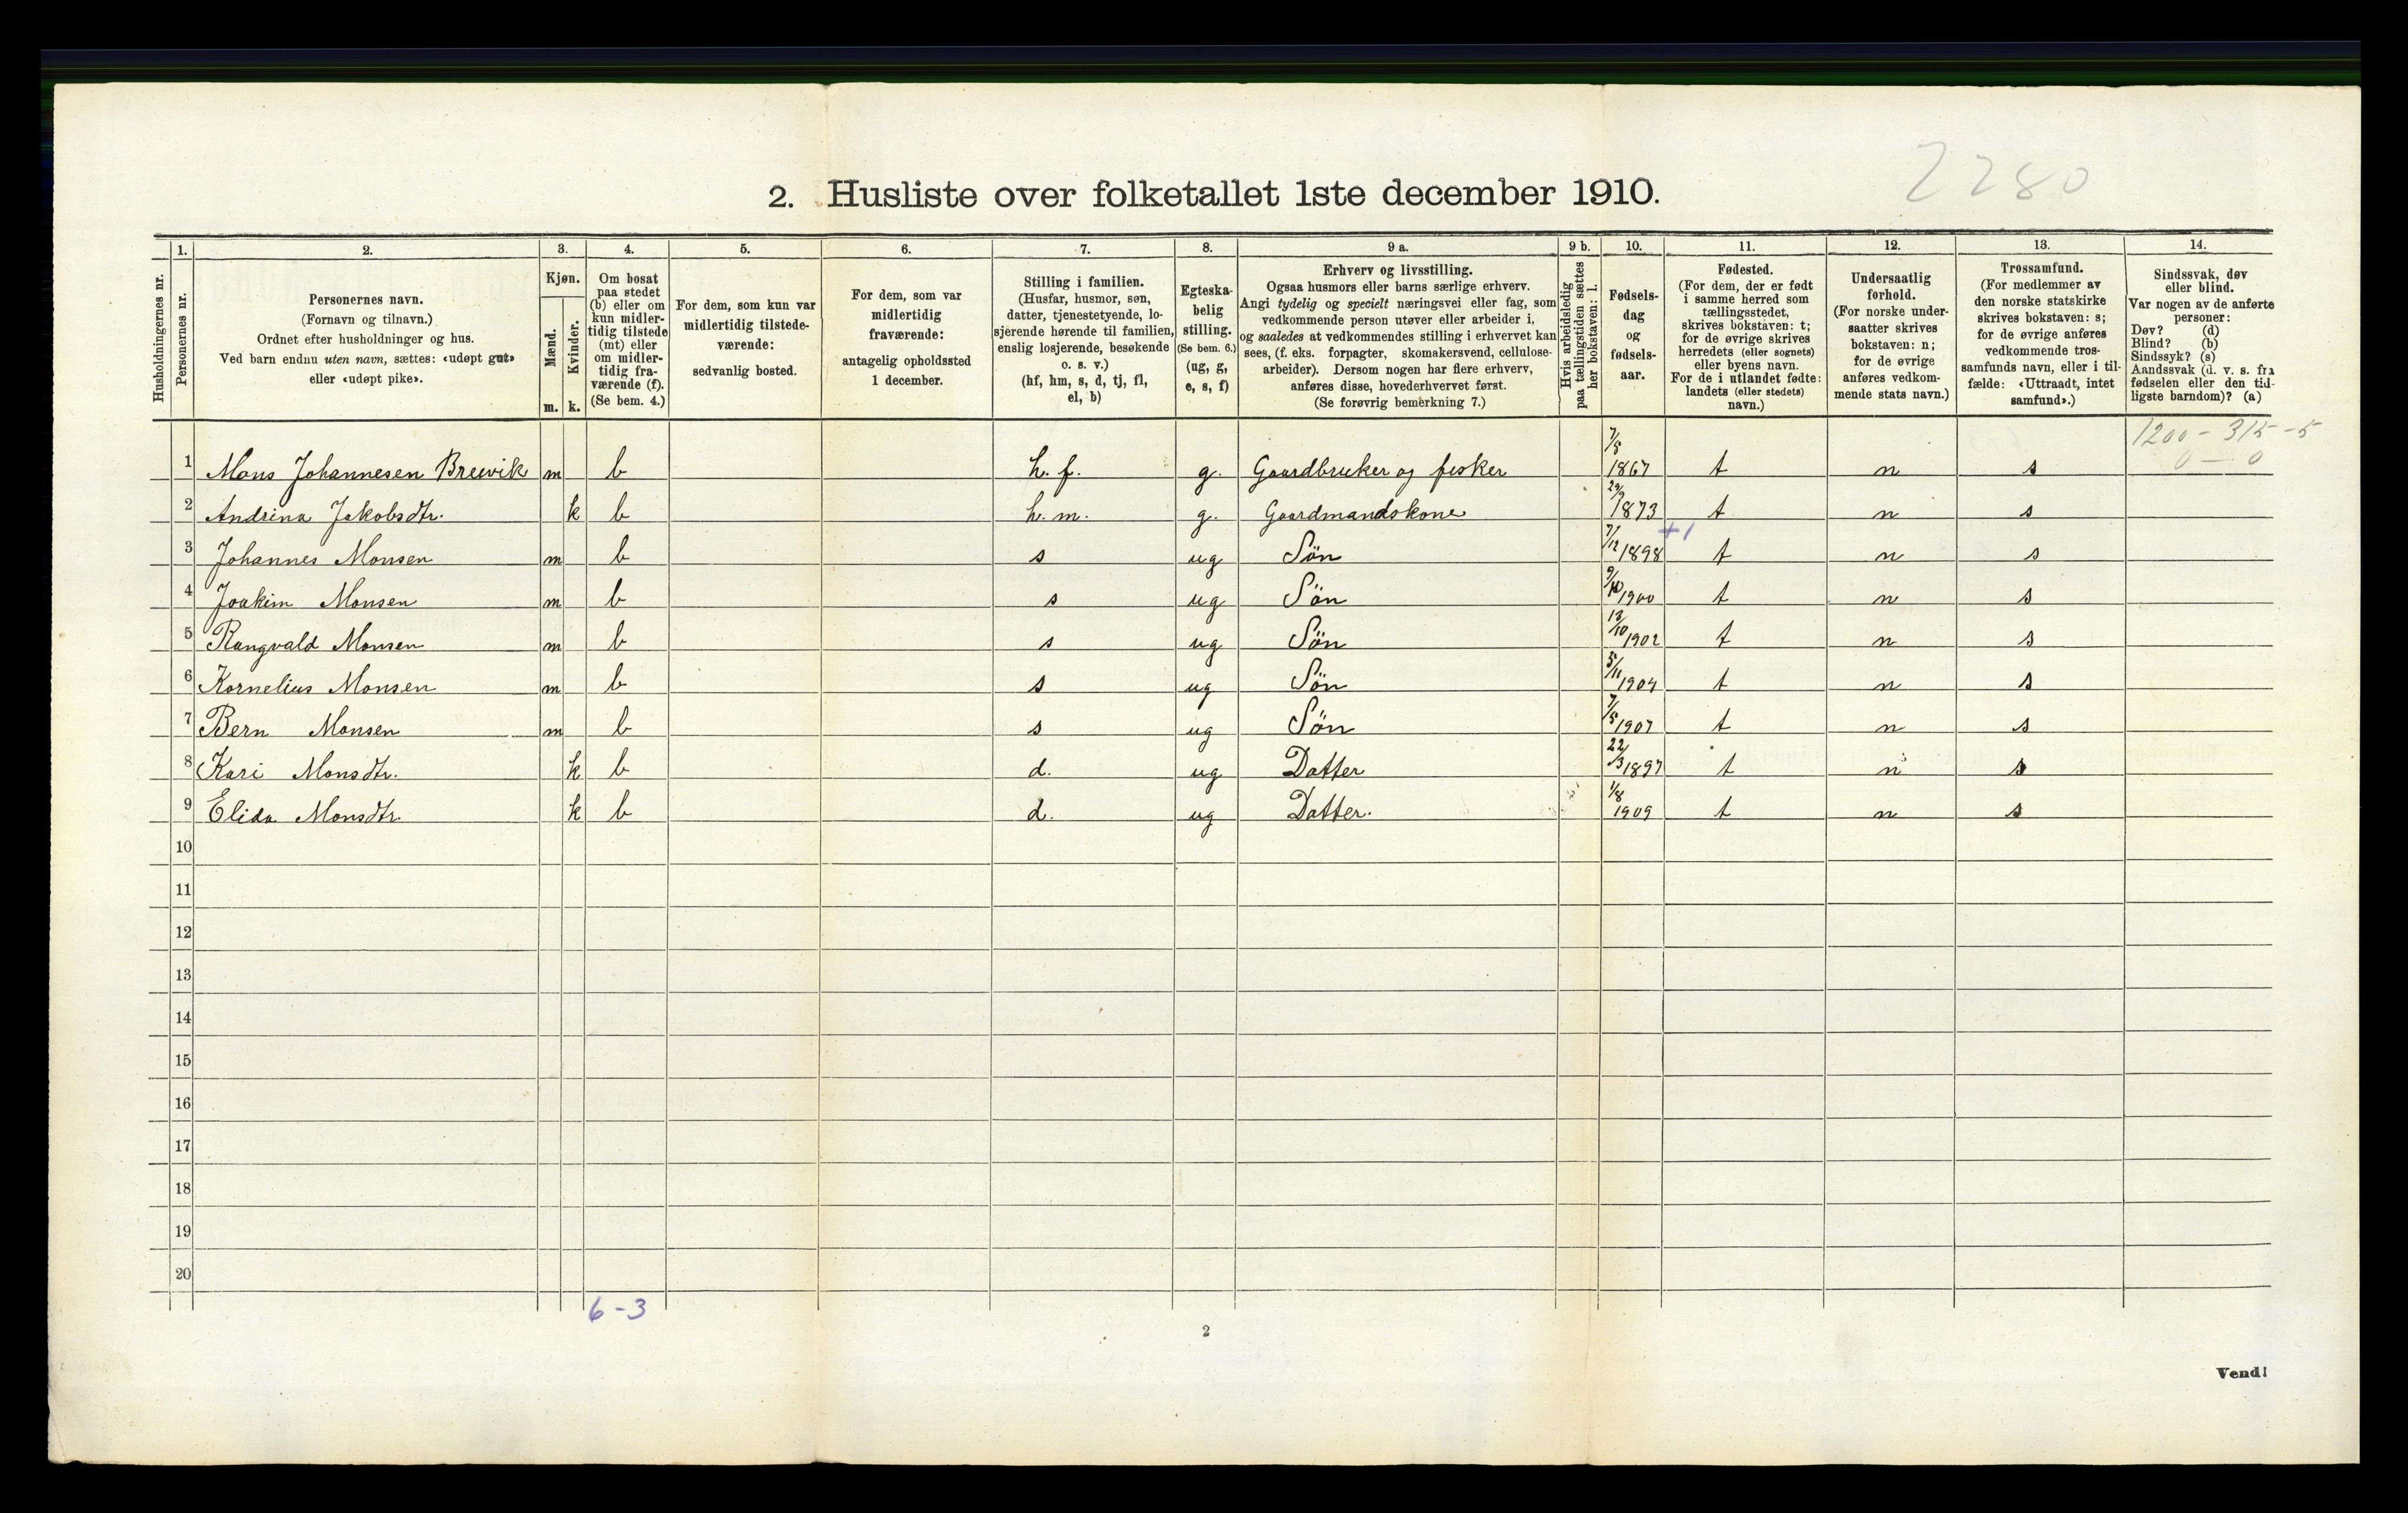 2280
2. Husliste over folketallet 1ste december 1910.
Husholdningernes nr.
1. Personernes nr.
2. Personernes navn.
(Fornavn og tilnavn.)
Ordnet efter husholdninger og hus.
Ved barn endnu uten navn, sættes: «udøpt gut»
eller «udøpt pike».
3. Kjøn.
Mænd. m.
Kvinder. k.
4. Om bosat
paa stedet
(b) eller om
kun midler-
tidig tilstede
(mt) eller
om midler-
tidig fra-
værende (f).
(Se bem. 4.)
5. For dem, som kun var
midlertidig tilstede-
værende:
sedvanlig bosted.
6. For dem, som var
midlertidig
fraværende:
antagelig opholdssted
1 december.
7. Stilling i familien.
(Husfar, husmor, søn,
datter, tjenestetyende, lo-
sjerende hørende til familien,
enslig losjerende, besøkende
o. s. v.)
(hf, hm, s, d, tj, fl,
el, b)
8. Egteska-
belig
stilling.
(Se bem. 6.)
(ug, g,
e, s, f)
9 a. Erhverv og livsstilling.
Ogsaa husmors eller barns særlige erhverv.
Angi tydelig og specielt næringsvei eller fag, som
vedkommende person utøver eller arbeider i,
og saaledes at vedkommendes stilling i erhvervet kan
sees, (f. eks. forpagter, skomakersvend, cellulose-
arbeider). Dersom nogen har flere erhverv,
anføres disse, hovederhvervet først.
(Se forøvrig bemerkning 7.)
9 b. Hvis arbeidsledig
paa tællingstiden sættes
her bokstaven: l.
10. Fødsels-
dag
og
fødsels-
aar.
11. Fødested.
(For dem, der er født
i samme herred som
tællingsstedet,
skrives bokstaven: t;
for de øvrige skrives
herredets (eller sognets)
eller byens navn.
For de i utlandet fødte:
landets (eller stedets)
navn.)
12. Undersaatlig
forhold.
(For norske under-
saatter skrives
bokstaven: n;
for de øvrige
anføres vedkom-
mende stats navn.)
13. Trossamfund.
(For medlemmer av
den norske statskirke
skrives bokstaven: s;
for de øvrige anføres
vedkommende tros-
samfunds navn, eller i til-
fælde: «Uttraadt, intet
samfund».)
14. Sindssvak, døv
eller blind.
Var nogen av de anførte
personer:
Døv? (d)
Blind? (b)
Sindssyk? (s)
Aandssvak (d. v. s. fra
fødselen eller den tid-
ligste barndom)? (a)
1200 - 315 - 5
0 — 0
1 Mons Johannesen Breivik m b h. f. g. Gaardbruker og fisker 7/5 1867 t n s
2 Andrina Jakobsdtr. k b h. m. g. Gaardmandskone 29/9 1873 t n s
+1
3 Johannes Monsen m b s ug Søn 7/12 1898 t n s
4 Joakim Monsen m b s ug Søn 9/10 1900 t n s
5 Rangvald Monsen m b s ug Søn 13/10 1902 t n s
6 Kornelius Monsen m b s ug Søn 5/11 1904 t n s
7 Bern Monsen m b s ug Søn 7/5 1907 t n s
8 Kari Monsdtr. k b d. ug Datter 22/3 1897 t n s
9 Elida Monsdtr. k b d. ug Datter. 1/8 1909 t n s
10
11
12
13
14
15
16
17
18
19
20
6 - 3
2
Vend!